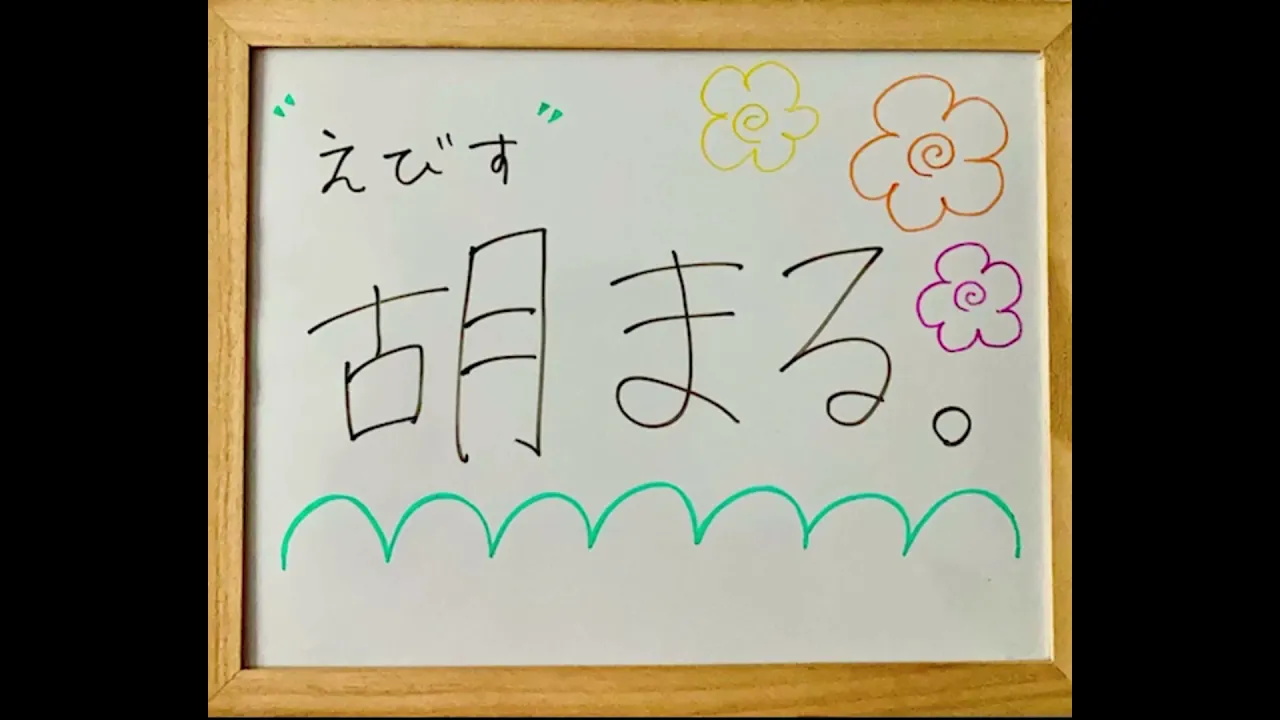 〃えびす〃
胡まる。